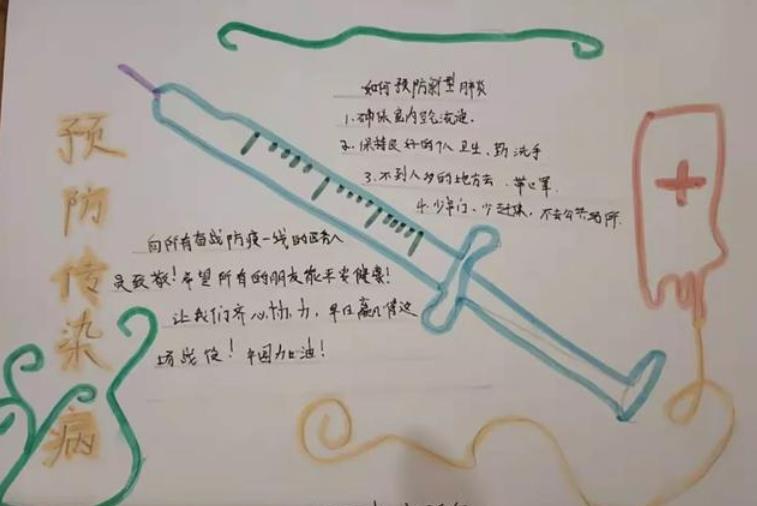 预防传染病
如何预防新型肺炎
1.确保室内空气流通。
2.保持良好的个人卫生、勤洗手
3.不到人多的地方去、带口罩
4.少串门、少赶集,不去公共场所.
向所有奋战防疫一线的医务人
员致敬!希望所有的朋友能平安健康!
让我们齐心协力,早日赢得这
场战役!中国加油!